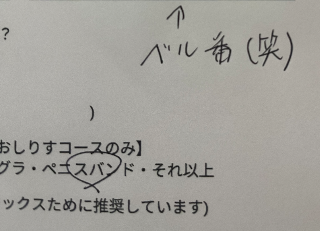 ?
↑
ベル番(笑)
)
おしりすコースのみ】
グラ・ペニスバンド・それ以上
ックスために推奨しています)